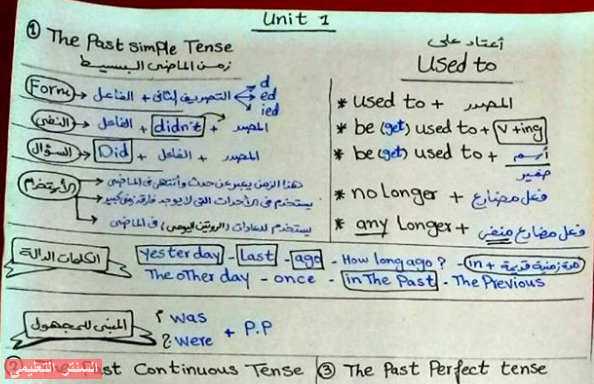 Unit 1
① The Past simple Tense
زمن الماضى البسيط
Form الفاعل + التصريف الثانى d ed ied
النفى الفاعل + didn't + المصدر
السؤال Did + الفاعل + المصدر
الأستخدام هذا الزمن يعبر عن حدث وأنتهى فى الماضى
يستخدم فى الأحداث التى لا يوجد فارق زمنى كبير
يستخدم للعادات (الروتين اليومى) فى الماضى
أعتاد على
Used to
* used to + المصدر
* be (get) used to + V+ing
* be (get) used to + أسم
ضمير
* no longer + فعل مضارع
* any Longer + فعل مضارع منفى
الكلمات الدالة yesterday - Last - ago - How long ago? - in + فترة زمنية قديمة
The other day - once - in The Past - The Previous
المبنى للمجهول was
were + P.P
The Past Continuous Tense
③ The Past Perfect tense
السنتر التعليمي